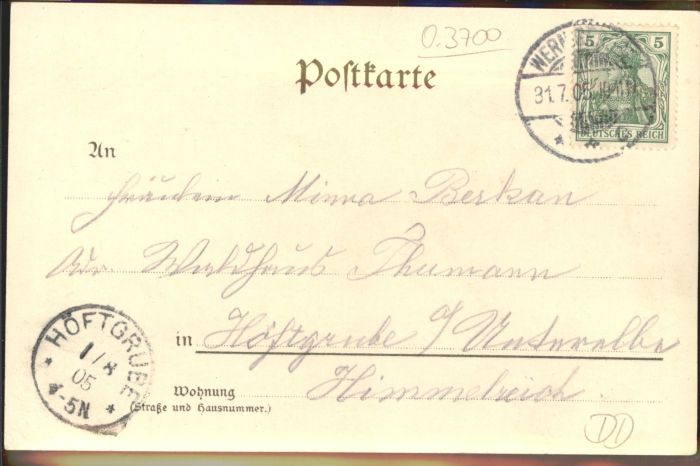 0.3700
Postkarte
5 5
DEUTSCHES REICH
WERN
31.7.05
An
Fräulein Minna Berkan
Adr. Waldhaus Thumann
in Höftgrube / Unterelbe
Himmelreich
Wohnung
(Straße und Hausnummer.)
HÖFTGRUBE
1/8
05
4-5N
DD